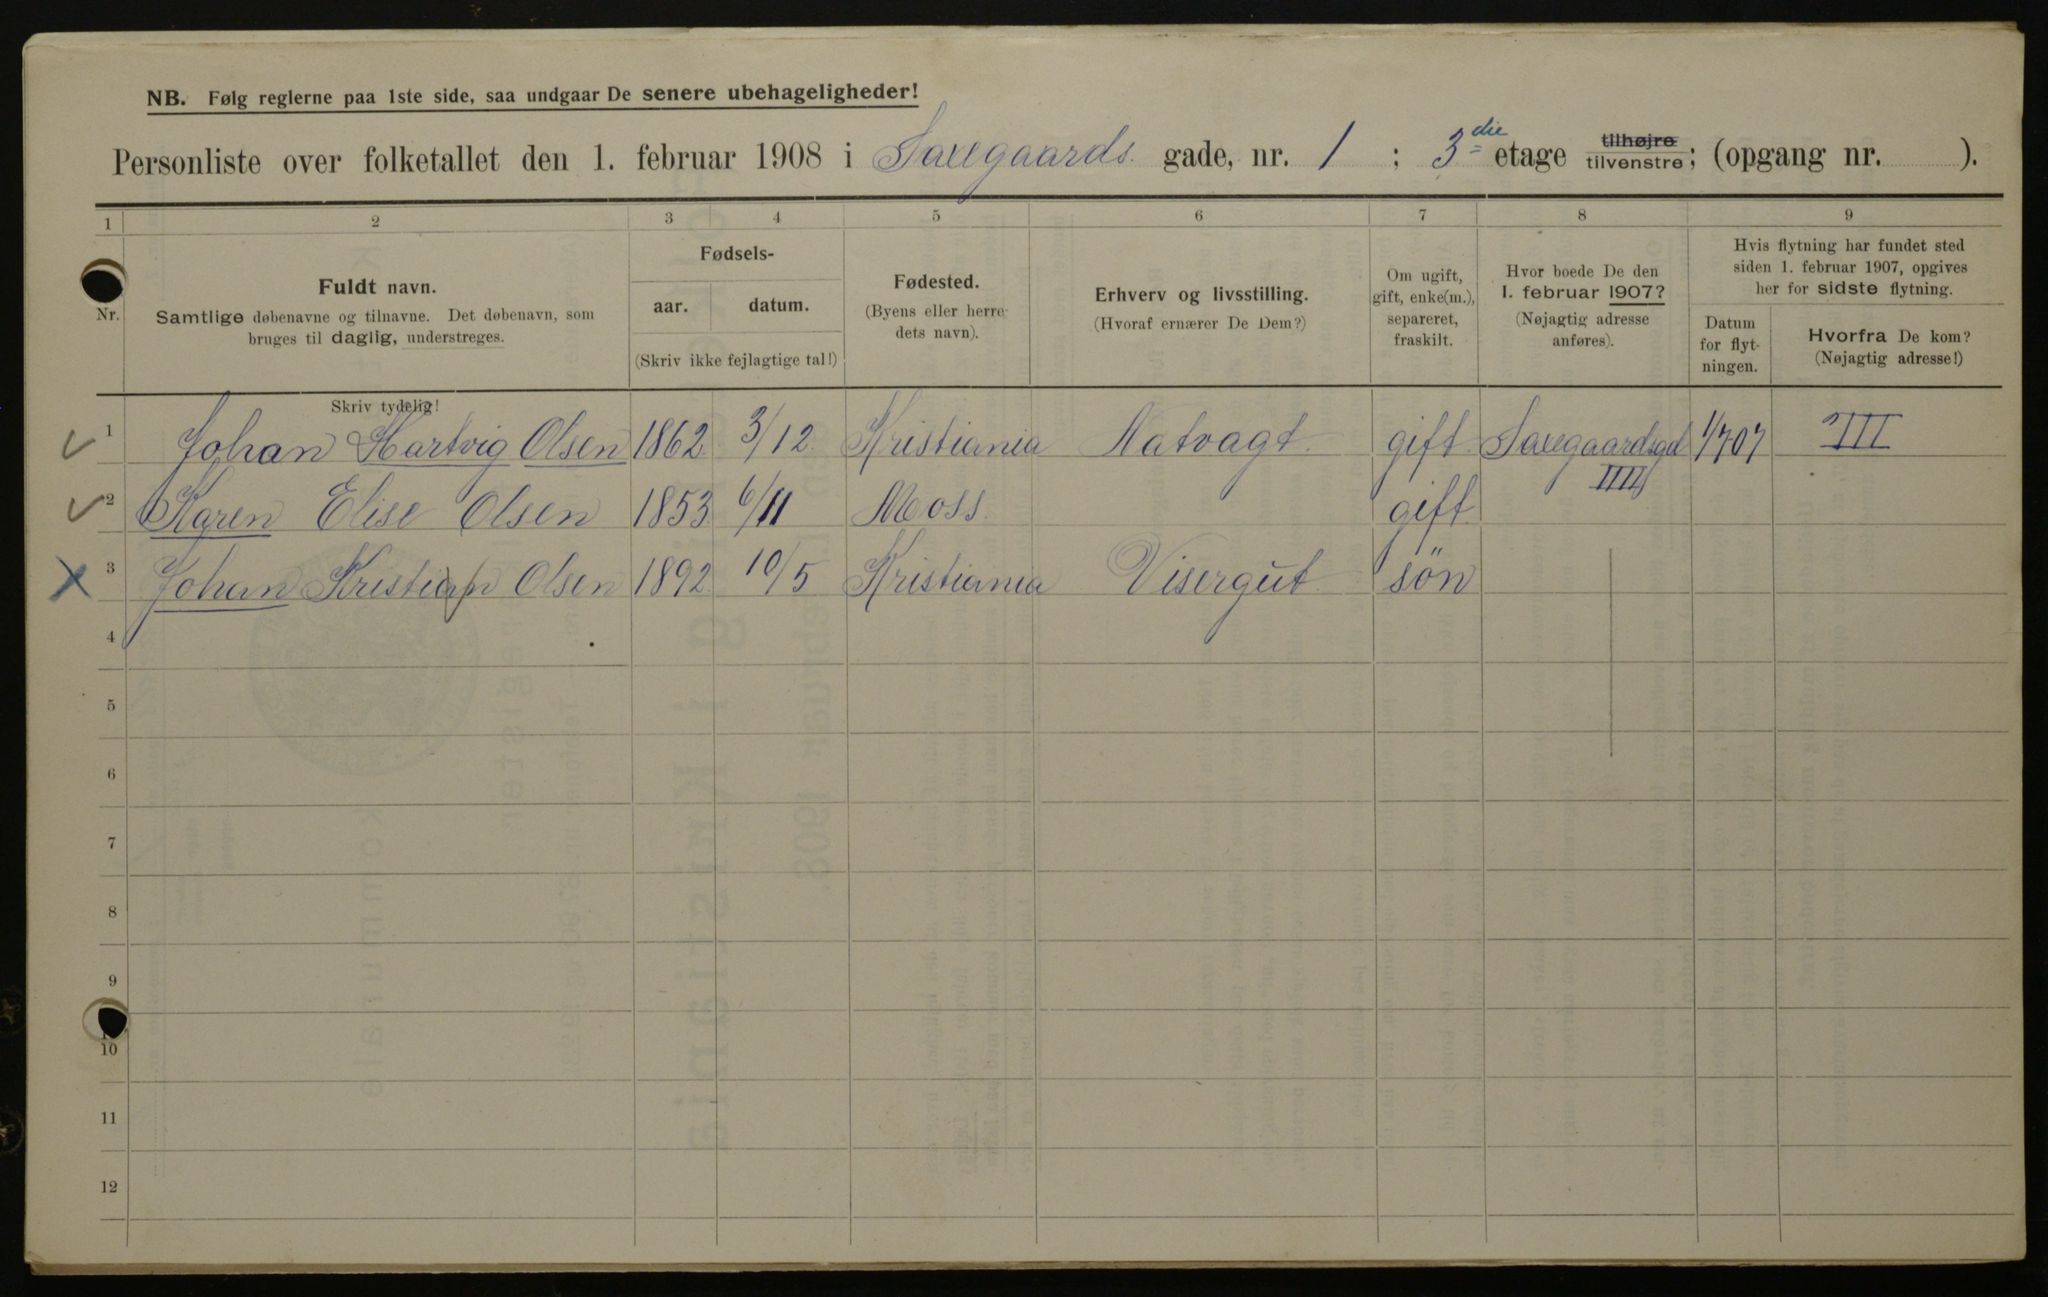 NB. Følg reglerne paa 1ste side, saa undgaar De senere ubehageligheder!
Personliste over folketallet den 1. februar 1908 i Saxegaards gade, nr. 1 ; 3die etage tilhøjre tilvenstre; (opgang nr. ).
1 2 3 4 5 6 7 8 9
Nr.
Fuldt navn.
Samtlige døbenavne og tilnavne. Det døbenavn, som
bruges til daglig, understreges.
Fødsels-
aar. datum.
(Skriv ikke fejlagtige tal!)
Fødested.
(Byens eller herre-
dets navn).
Erhverv og livsstilling.
(Hvoraf ernærer De Dem?)
Om ugift,
gift, enke(m.),
separeret,
fraskilt.
Hvor boede De den
1. februar 1907?
(Nøjagtig adresse
anføres).
Hvis flytning har fundet sted
siden 1. februar 1907, opgives
her for sidste flytning.
Datum
for flyt-
ningen.
Hvorfra De kom?
(Nøjagtig adresse!)
Skriv tydelig!
1 Johan Hartvig Olsen 1862 3/12 Kristiania Natvagt gift Saxegaardsgd 1/707 III
IIII
2 Karen Elise Olsen 1853 6/11 Moss. gift
3 Johan Kristian Olsen 1892 10/5 Kristiania Visergut søn
4
5
6
7
8
9
10
11
12